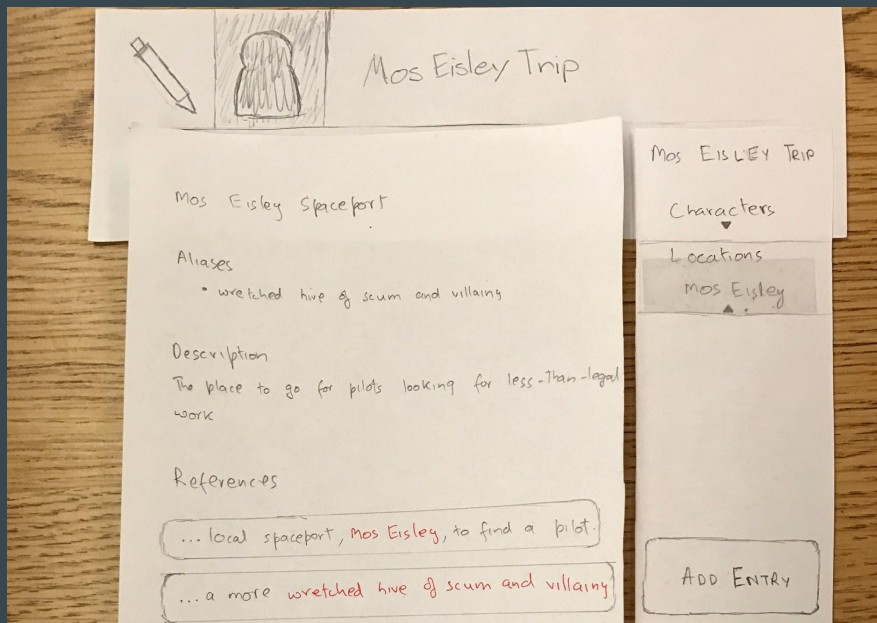 Mos Eisley Trip
Mos Eisley Spaceport
Aliases
• wretched hive of scum and villainy
Description
The place to go for pilots looking for less-than-legal
work
References
... local spaceport, Mos Eisley, to find a pilot.
... a more wretched hive of scum and villainy
Mos EISLEY TRIP
Characters
Locations
Mos Eisley
ADD ENTRY